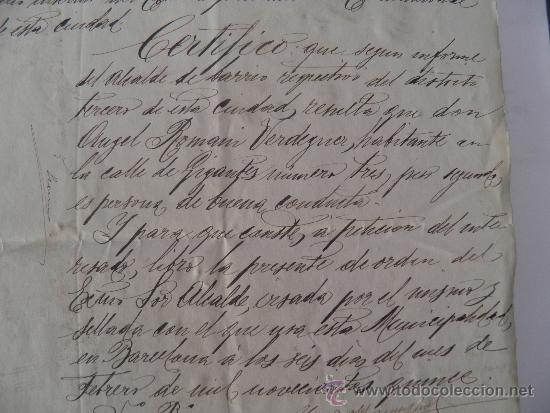 de esta ciudad.
Certifico que segun informe
del Alcalde de barrio respectivo del distrito
tercero de esta ciudad, resulta que don
Angel Romain Verdeguer, habitante en
la calle de Gigantes numero tres, piso segundo,
es persona de buena conducta.
Y para que conste, a peticion del inte-
resado, libro la presente de orden del
Excmo Sor Alcalde, visada por el mismo y
sellada con el que usa esta Municipalidad,
en Barcelona a los seis dias del mes de
Febrero de mil novecientos
todocoleccion.net